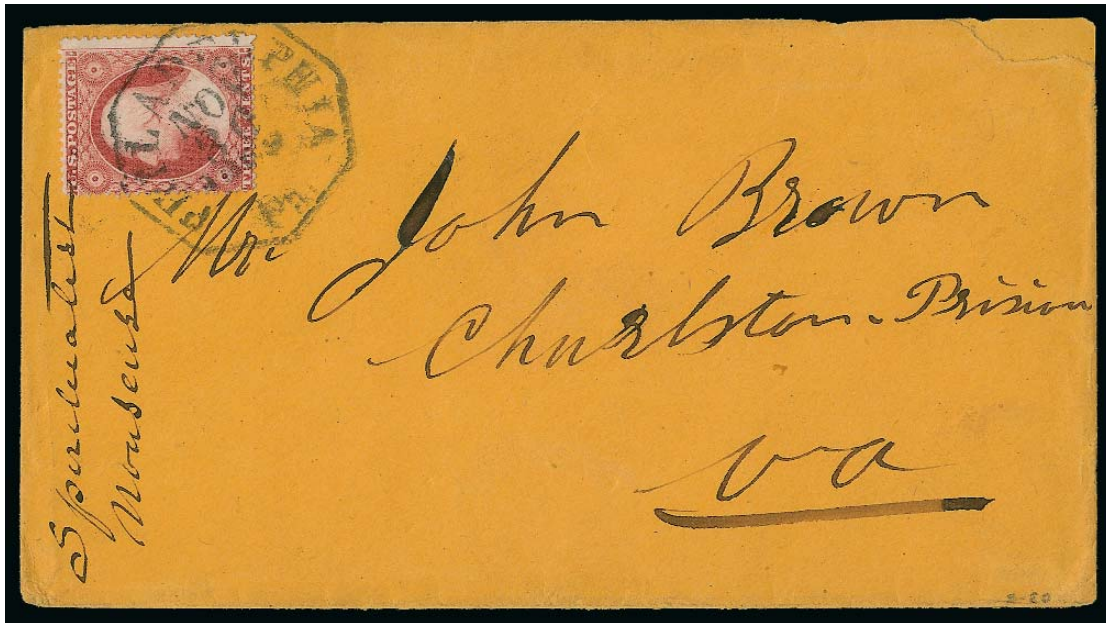 U.S. POSTAGE
THREE CENTS
PHILADELPHIA
NOV
Pa.
Mr. John Brown
Charlston Prision
Va
Spiritualist
Nonsense